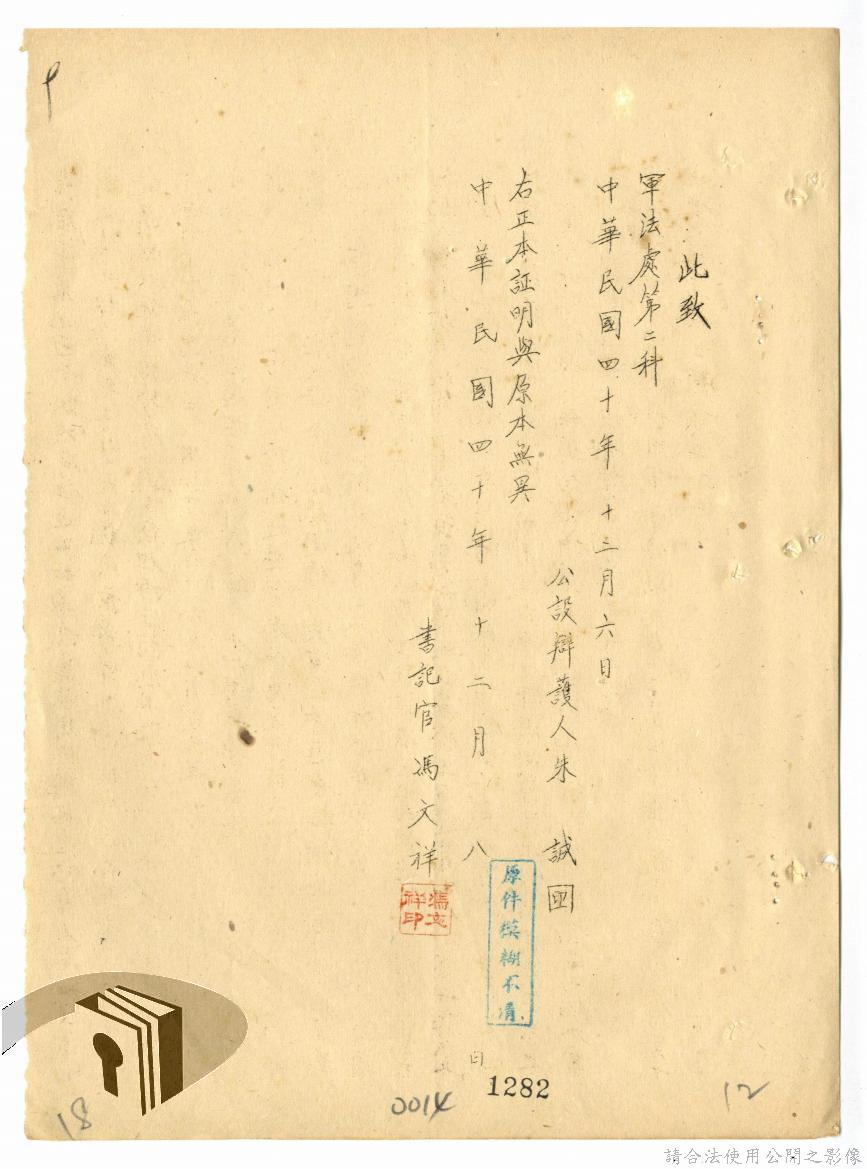 此致
軍法處第二科
中華民國四十年十二月六日
公設辯護人朱誠印
右正本証明與原本無異
中華民國四十年十二月八日
書記官馮文祥
馮文祥印
原件模糊不清
1282
0014
12
18
請合法使用公開之影像